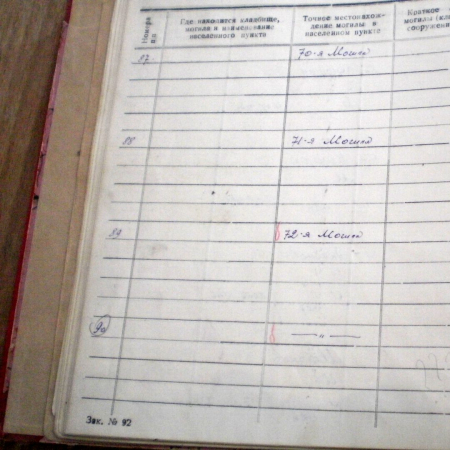 Где находится кладбище,
могила и наименование
населённого пункта
Точное местонахож-
дение могилы в
населённом пункте
Краткое
87 70-я Могил
88 71-я Могил
89 72-я Могил
90 — " —
Зак. № 92